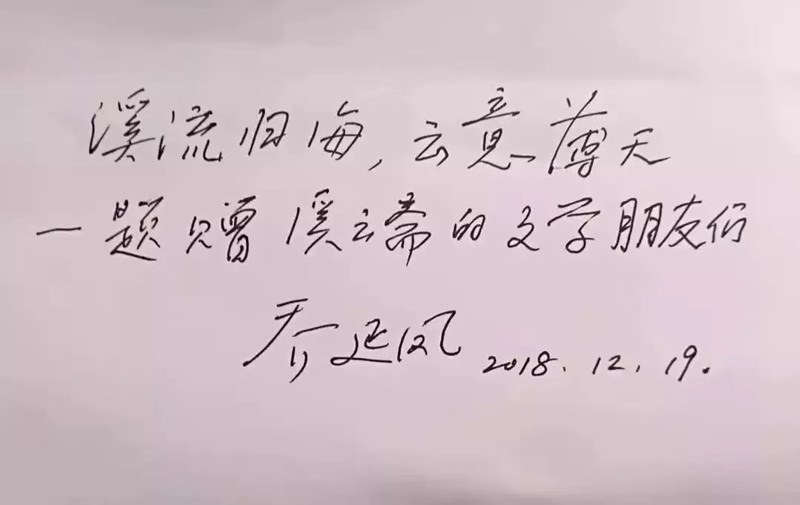 溪流归海，云意薄天
—题赠溪云斋的文学朋友们
乔延凤 2018.12.19.